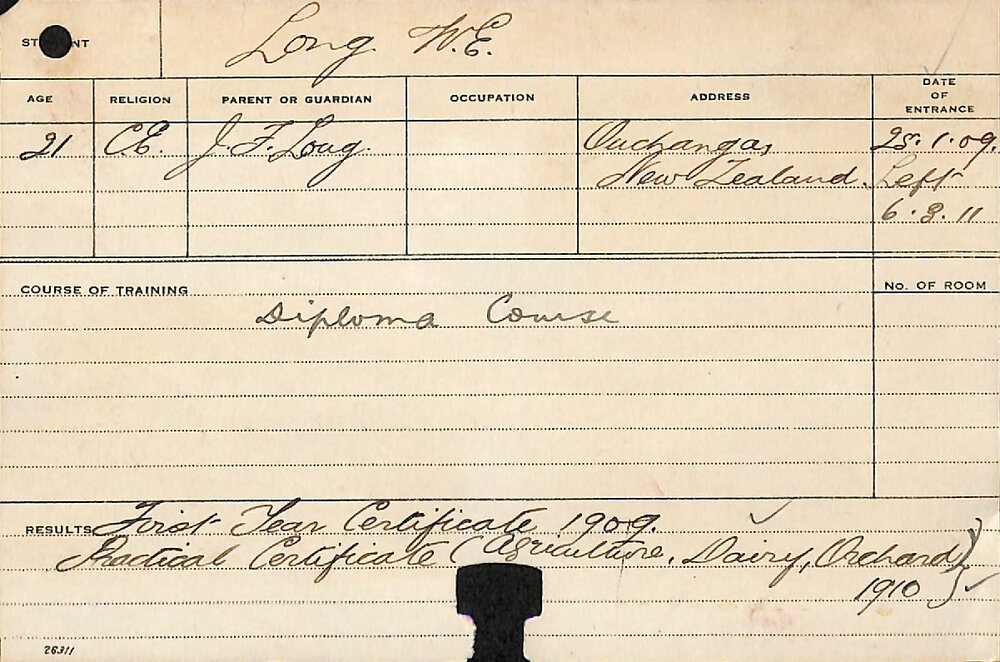 STUDENT Long W.E.
AGE RELIGION PARENT OR GUARDIAN OCCUPATION ADDRESS DATE OF ENTRANCE
21 C.E. J. F. Long. 28.1.09.
New Zealand. Left
6.3.11
COURSE OF TRAINING No. OF ROOM
Diploma Course
RESULTS First Year Certificate 1909.
Practical Certificate (Agriculture, Dairy, Orchard)
1910
26311